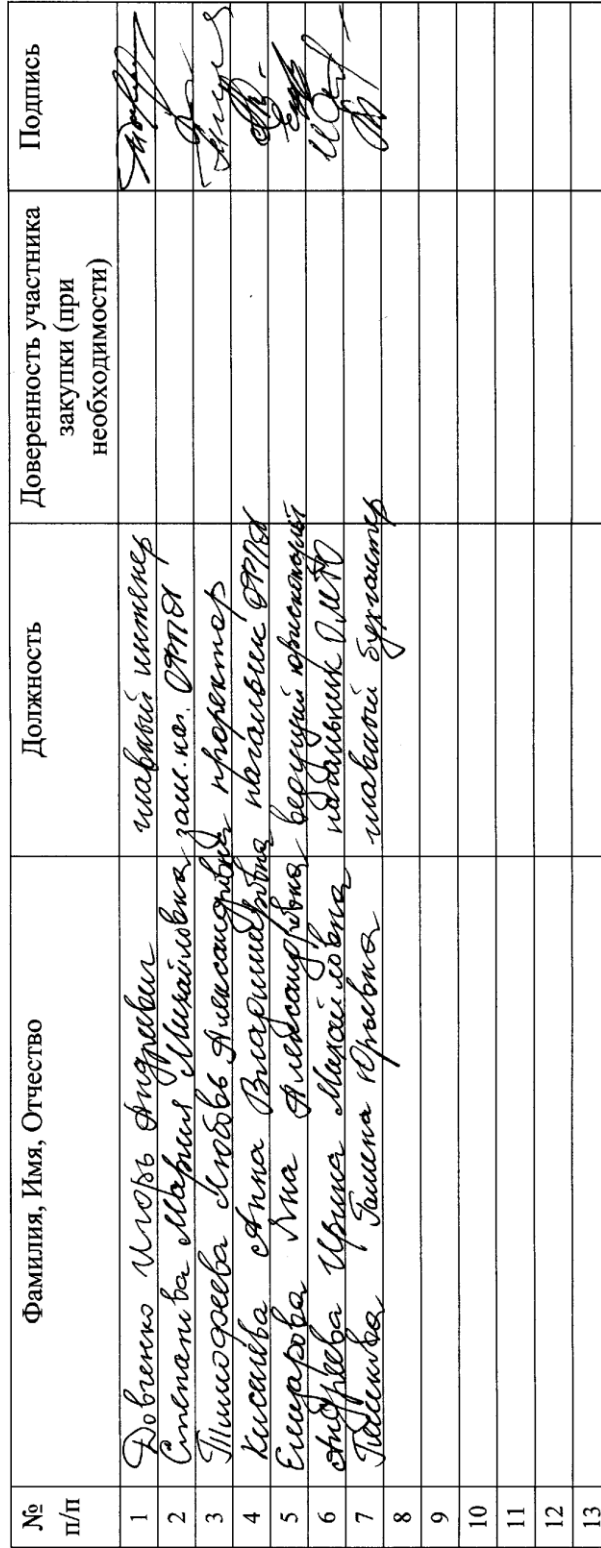 № п/п Фамилия, Имя, Отчество Должность Доверенность участника закупки (при необходимости) Подпись
1 Довченко Игорь Андреевич главный инженер
2 Степанова Мария Михайловна зам. нач.
3 Тимофеева Любовь Александровна проректор
4 Киселёва Анна Владимировна начальник
5 Яна Александровна ведущий юрисконсульт
6 Андреева Ирина Михайловна начальник ОМТО
7 Галина Юрьевна главный бухгалтер
8
9
10
11
12
13